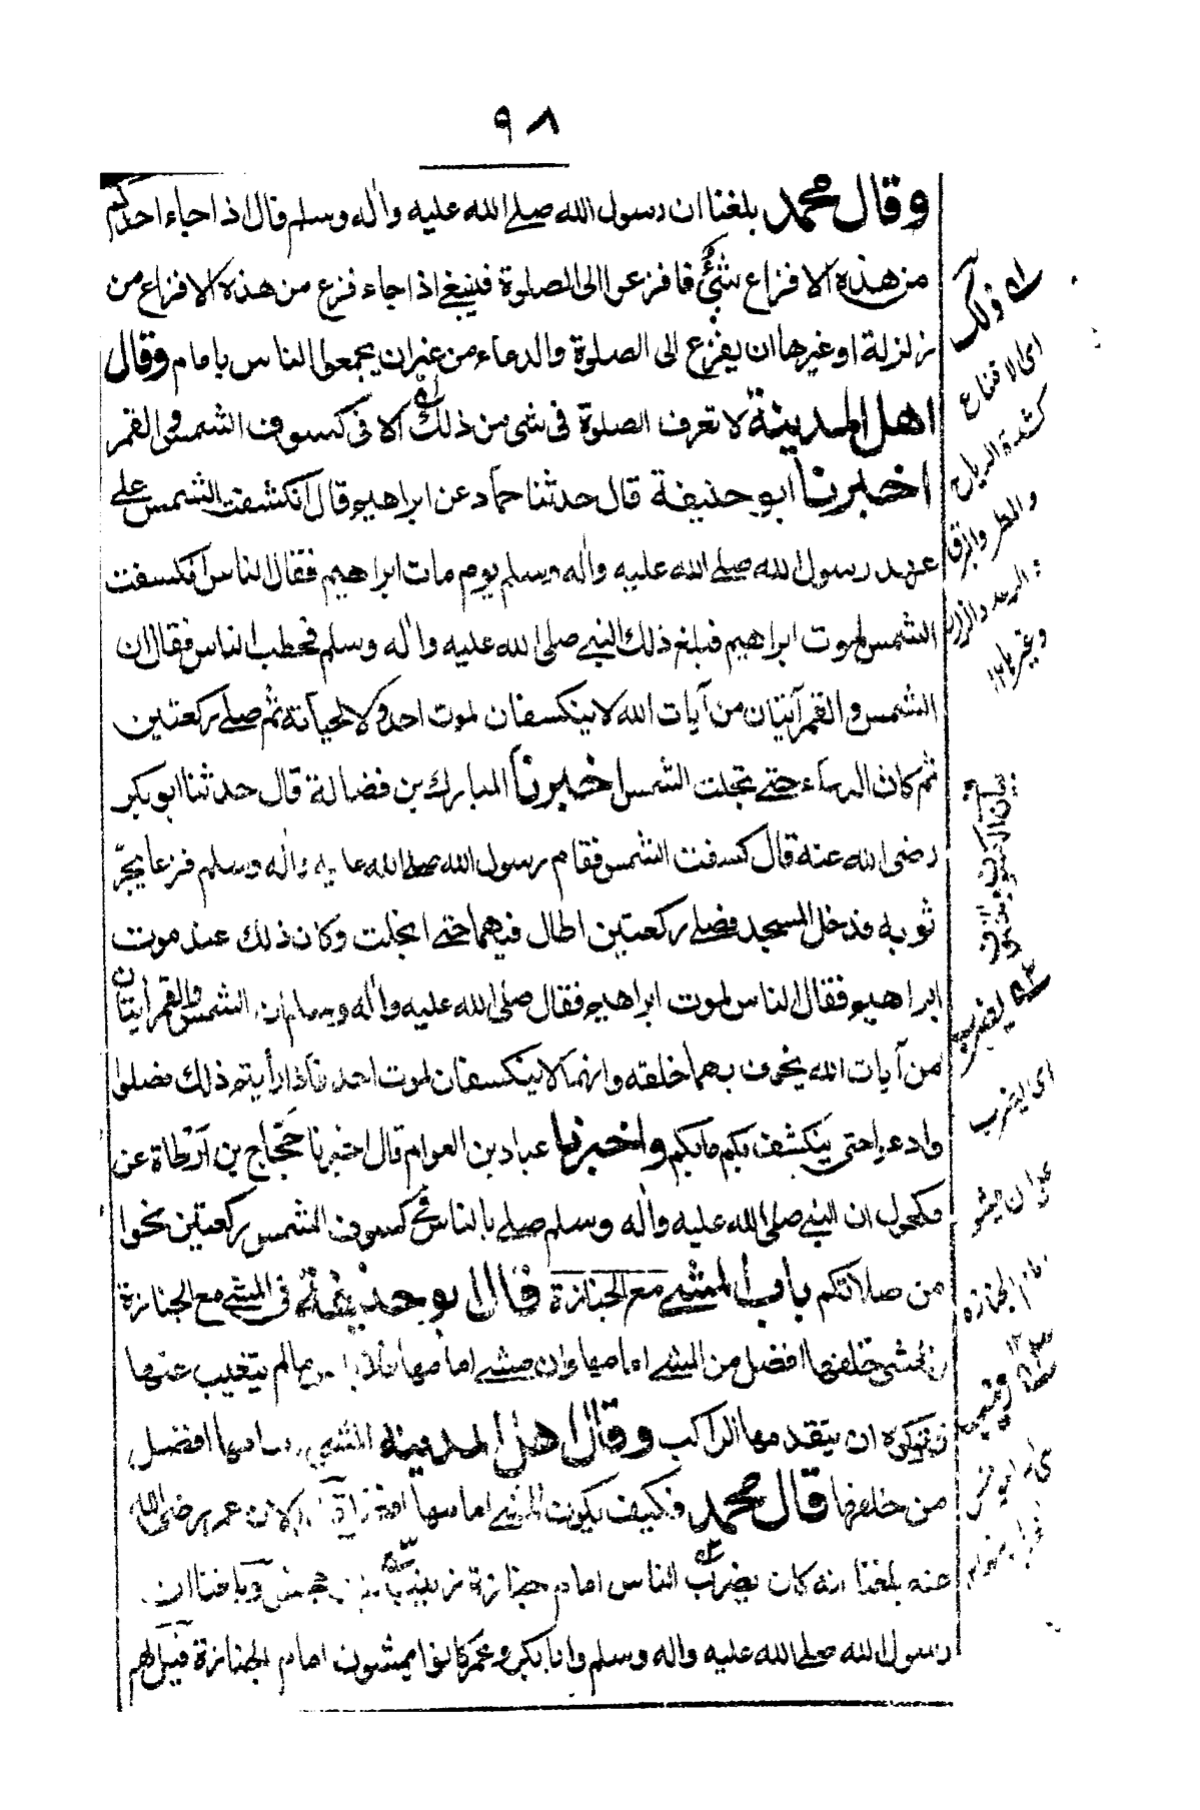 ٩٨
وقال محمد بلغنا ان رسول الله صلى الله عليه واٰله وسلم قال اذا جاء احدكم
من هذه الافزاع شئ فافزعوا الى الصلوة فينبغى اذا جاء فزع من هذه الافزاع من
زلزلة او غيرها ان يفزع الى الصلوة والدعاء من غير ان يجمع الناس بامام وقال
اهل المدينة لا تعرف الصلوة فى شئ من ذلك الا فى كسوف الشمس والقمر
اخبرنا ابو حنيفة قال حدثنا حماد عن ابراهيم قال انكشفت الشمس على
عهد رسول الله صلى الله عليه واٰله وسلم يوم مات ابراهيم فقال الناس انكسفت
الشمس لموت ابراهيم فبلغ ذلك النبي صلى الله عليه واٰله وسلم فخطب الناس فقال ان
الشمس والقمر آيتان من آيات الله لا ينكسفان لموت احد ولا لحياته ثم صلى ركعتين
ثم كان الدعاء حتى تجلت الشمس اخبرنا المبارك بن فضالة قال حدثنا ابو بكر
رضى الله عنه قال كسفت الشمس فقام رسول الله صلى الله عليه واٰله وسلم فزعا يجرّ
ثوبه فدخل المسجد فصلى ركعتين اطال فيهما حتى انجلت وكان ذلك عند موت
ابراهيم فقال الناس لموت ابراهيم فقال صلى الله عليه واٰله وسلم ان الشمس والقمر آيتان
من آيات الله يخوف بهما خلقه وانهما لا ينكسفان لموت احد فاذا رأيتم ذلك فصلوا
وادعوا حتى ينكشف بكم ما بكم واخبرنا عباد بن العوام قال اخبرنا حجاج بن ارطاة عن
مكحول ان النبي صلى الله عليه واٰله وسلم صلى بالناس فى كسوف الشمس ركعتين نحوا
من صلاتكم باب المشى مع الجنازة قال ابو حنيفة فى المشى مع الجنازة
ان المشى خلفها افضل من المشى امامها وان مشى امامها فلا باس ما لم يتغيب عنها
ونكره ان يتقدمها الراكب وقال اهل المدينة المشى امامها افضل
من خلفها قال محمد فكيف يكون المشى امامها افضل الان عمر رضى الله
عنه بلغنا انه كان يضرب الناس امام جنازة زينب بنت جحش وبلغنا ان
رسول الله صلى الله عليه واٰله وسلم وابا بكر وعمر كانوا يمشون امام الجنازة قيل لهم
اى الا فزاع
كشدة الرياح
والمطر والبرق
والرعد والزلزلة
وغيرها ١٢
اى يضرب
على ان يمشو
امام الجنازة